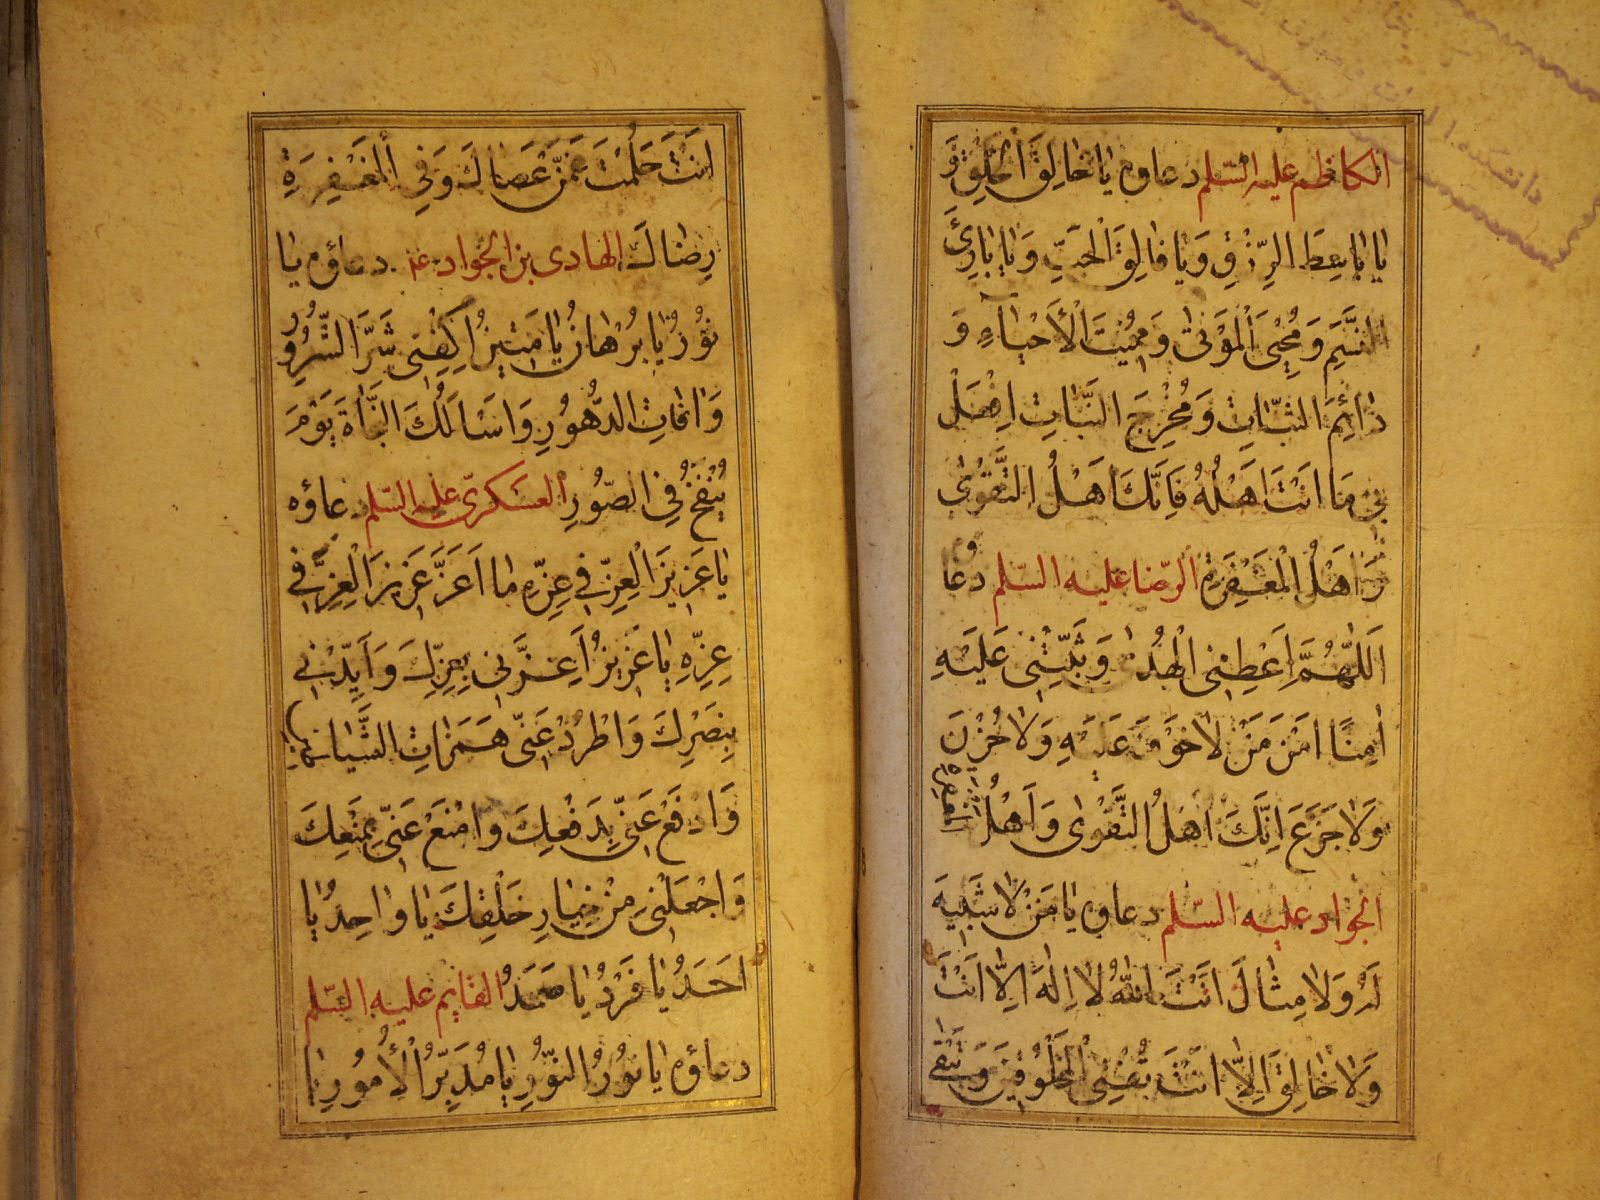 الكاظم عليه السّلم دعاوه يا خالِقَ الْخَلْقِ وَ
يا باسِطَ الرِّزْقِ وَيا فالِقَ الْحَبِّ وَيا بارِئَ
النَّسَمِ وَمُحْيِىَ الْمَوْتى وَمُمِيتَ الْأَحْياءِ وَ
دائِمَ الثَّباتِ وَمُخْرِجَ النَّباتِ اِفْعَلْ
بى مَا اَنْتَ اَهْلُهُ فَاِنَّكَ اَهْلُ التَّقْوى
وَاَهْلُ الْمَغْفِرَةِ الرّضا عليه السّلم دعاوه
اَللّهُمَّ اَعْطِنِى الْهُدى وَثَبِّتْنى عَلَيْهِ
اٰمِنًا اَمْنَ مَنْ لا خَوْفَ عَلَيْهِ وَلا حُزْنَ
وَلا جَزَعَ اِنَّكَ اَهْلُ التَّقْوى وَاَهْلُ المغفرة
الجواد عليه السّلم دعاوه يا مَنْ لا شَبِيهَ
لَهُ وَلا مِثالَ اَنْتَ اللّهُ لا اِلهَ اِلّا اَنْتَ
وَلا خالِقَ اِلّا اَنْتَ تُفْنِى الْمَخْلُوقينَ وَتَبْقى
اَنْتَ حَلُمْتَ عَمَّنْ عَصاكَ وَفِى الْمَغْفِرَةِ
رِضاكَ الهادى بن الجواد ع دعاؤه يا
نُورُ يا بُرْهانُ يا مُبينُ اكْفِنى شَرَّ الشُّرُورِ
وَافاتِ الدُّهُورِ وَاَسْاَلُكَ النَّجاةَ يَوْمَ
يُنْفَخُ فِى الصُّورِ العسكرىّ عليه السّلم دعاؤه
يا عَزيزَ الْعِزِّ فى عِزِّهِ ما اَعَزَّ عَزيزَ الْعِزِّ فى
عِزِّهِ يا عَزيزُ اَعِزَّنى بِعِزِّكَ وَاَيِّدْنى
بِنَصْرِكَ وَاطْرُدْ عَنّى هَمَزاتِ الشَّياطينِ
وَادْفَعْ عَنّى بِدَفْعِكَ وَامْنَعْ عَنّى بِمَنْعِكَ
وَاجْعَلْنى مِنْ خِيارِ خَلْقِكَ يا واحِدُ يا
اَحَدُ يا فَرْدُ يا صَمَدُ القايم عليه السّلم
دعاؤه يا نُورُ النُّورِ يا مُدَبِّرَ الْأُمُورِ يا